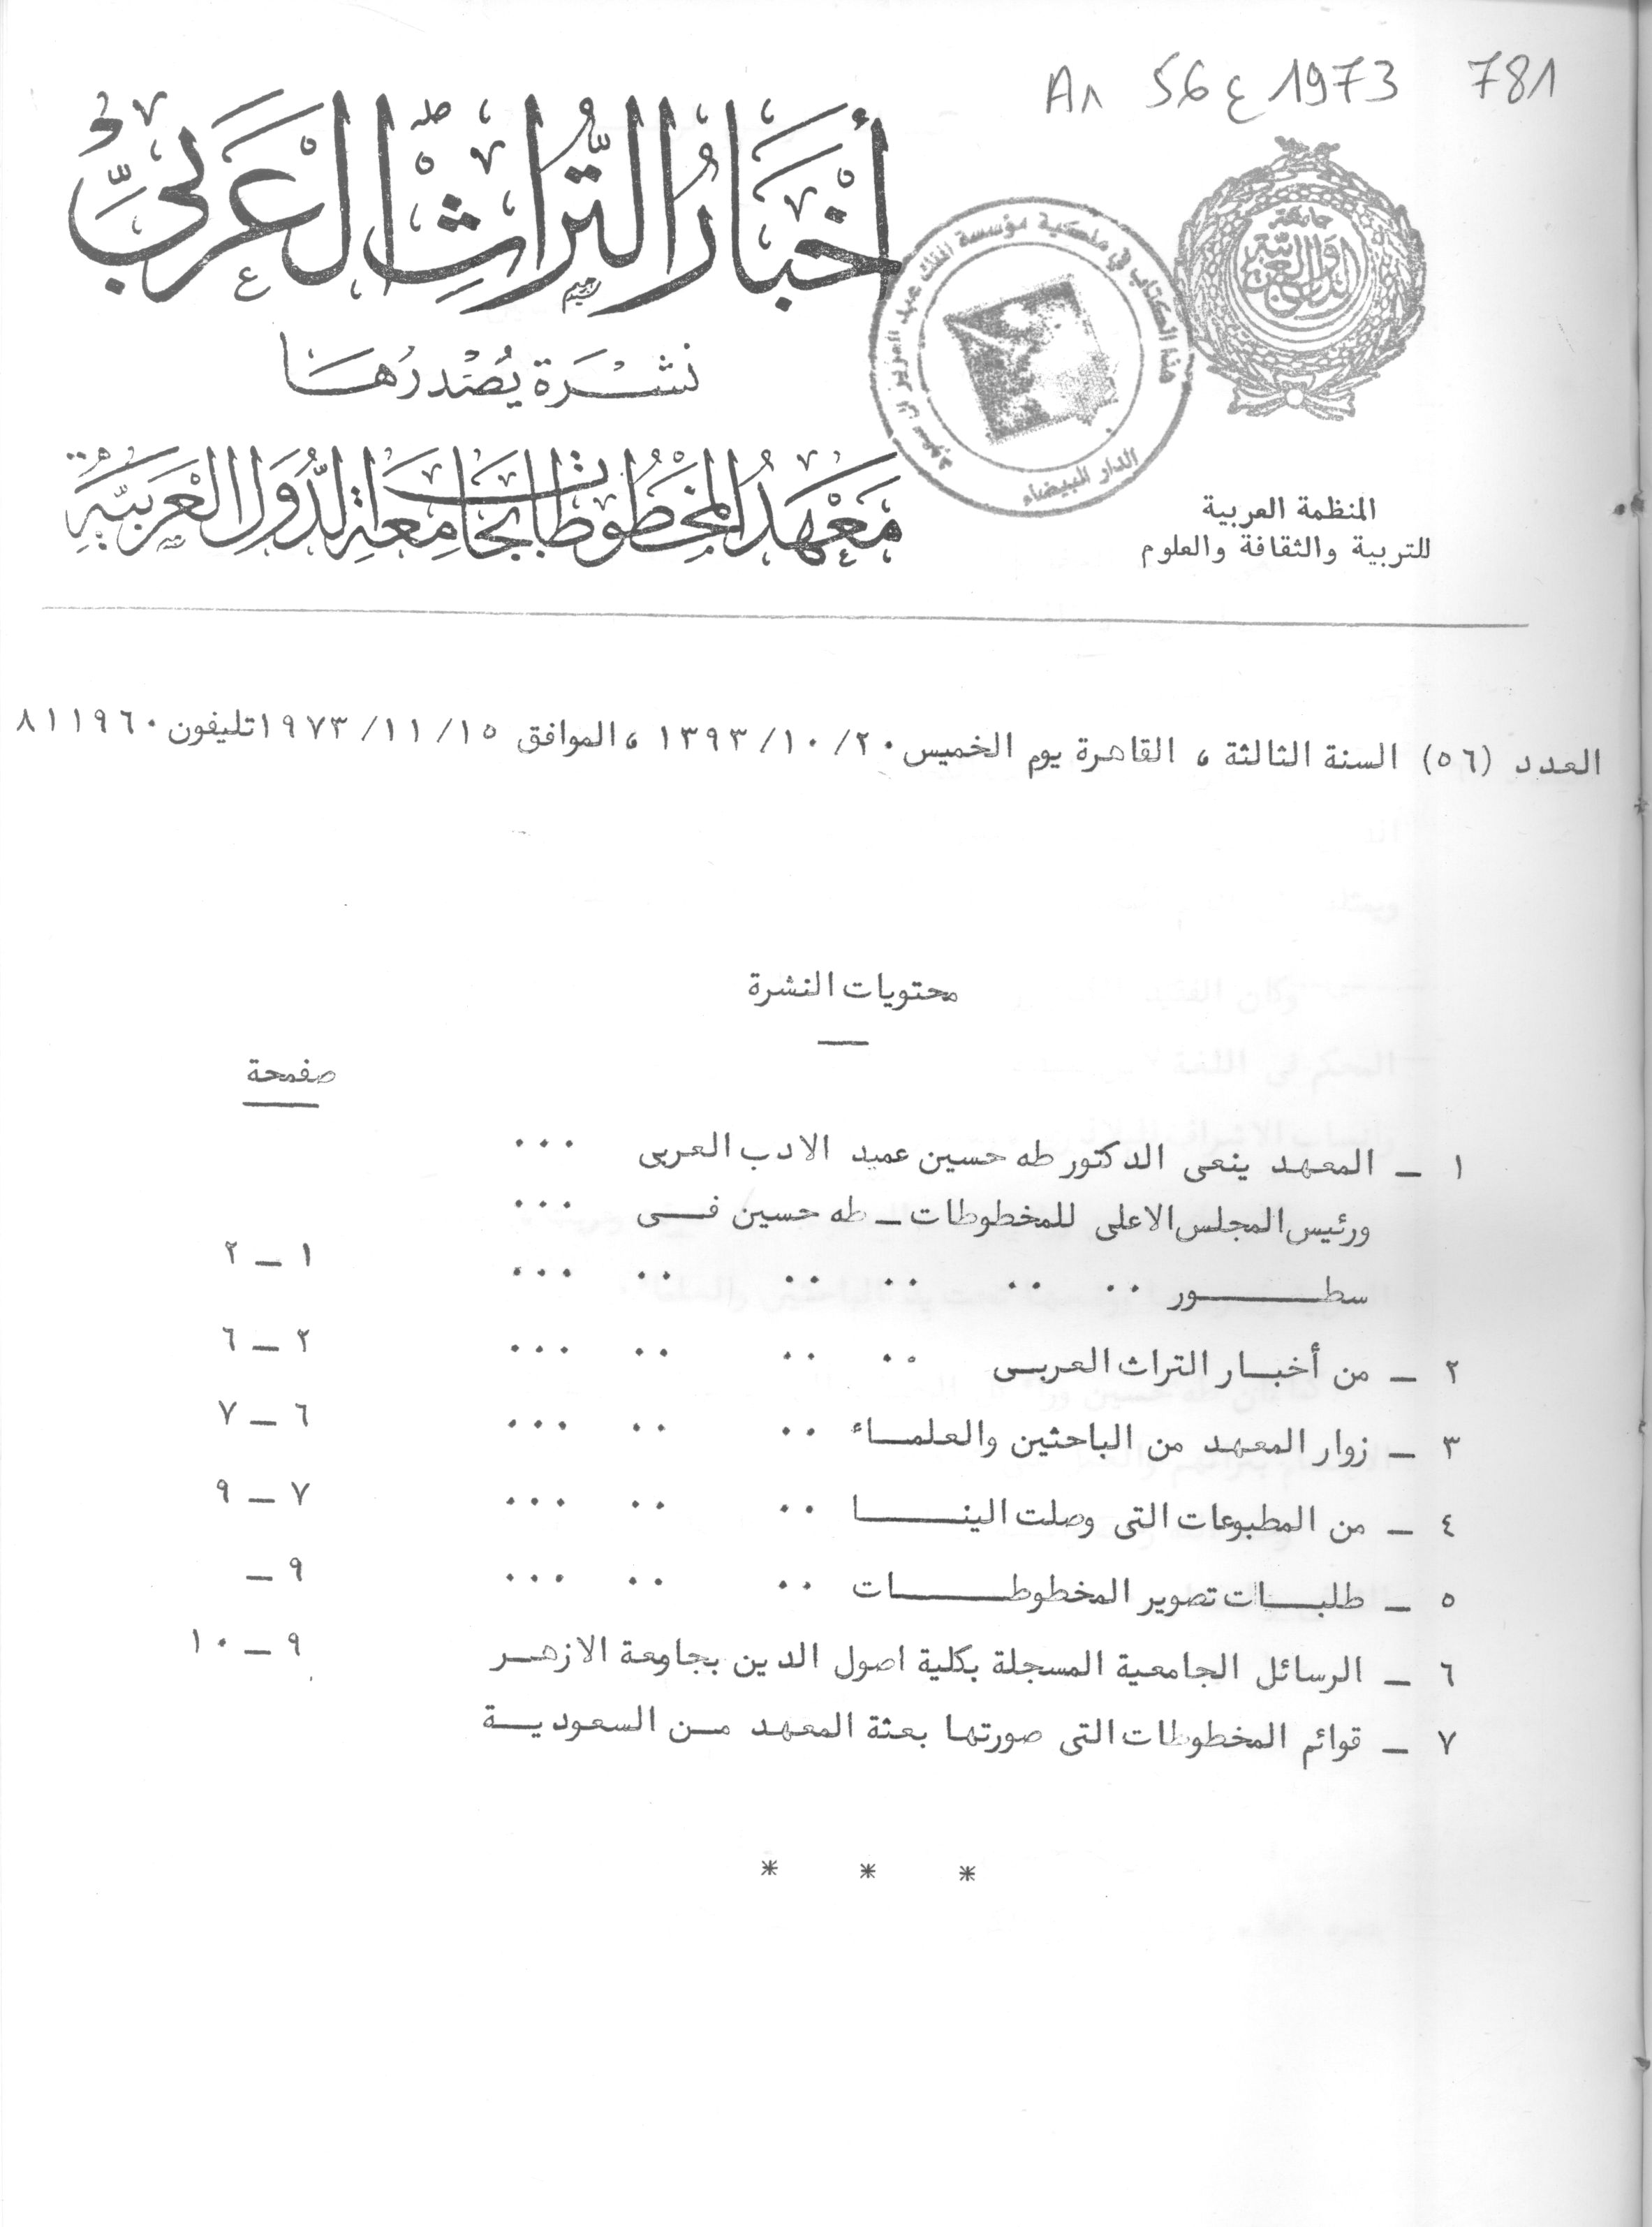 781 1973 ع 56 An
أَخْبَارُ التُّرَاثِ الْعَرَبِيِّ
نَشْرَة يُصْدِرُهَا
مَعْهَدُ المَخْطُوطَاتِ بِجَامِعَةِ الدُّوَلِ الْعَرَبِيَّةِ
جامعة الدول العربية
هذا الكتاب في ملكية مؤسسة الملك عبد العزيز آل سعود
الدار البيضاء
المنظمة العربية
للتربية والثقافة والعلوم
العدد (٥٦) السنة الثالثة ، القاهرة يوم الخميس ٢٠/١٠/١٣٩٣ ، الموافق ١٥/١١/١٩٧٣ تليفون ٨١١٩٦٠
محتويات النشرة
صفحة
١ ـ المعهد ينعى الدكتور طه حسين عميد الادب العربى ...
ورئيس المجلس الاعلى للمخطوطات ـ طه حسين فـــى ...
سطــــــور .. .. .. .. .. ... ١ ـ ٢
٢ ـ من أخبــار التراث العربــى .. .. .. ... ٢ ـ ٦
٣ ـ زوار المعهد من الباحثين والعلمــاء .. .. ... ٦ ـ ٧
٤ ـ من المطبوعات التى وصلت الينــــا .. .. ... ٧ ـ ٩
٥ ـ طلبــات تصوير المخطوطــــــات .. .. ... ٩ ـ
٦ ـ الرسائل الجامعية المسجلة بكلية اصول الدين بجامعة الازهــر ٩ ـ ١٠
٧ ـ قوائم المخطوطات التى صورتها بعثة المعهد مــن السعوديــة
* * *